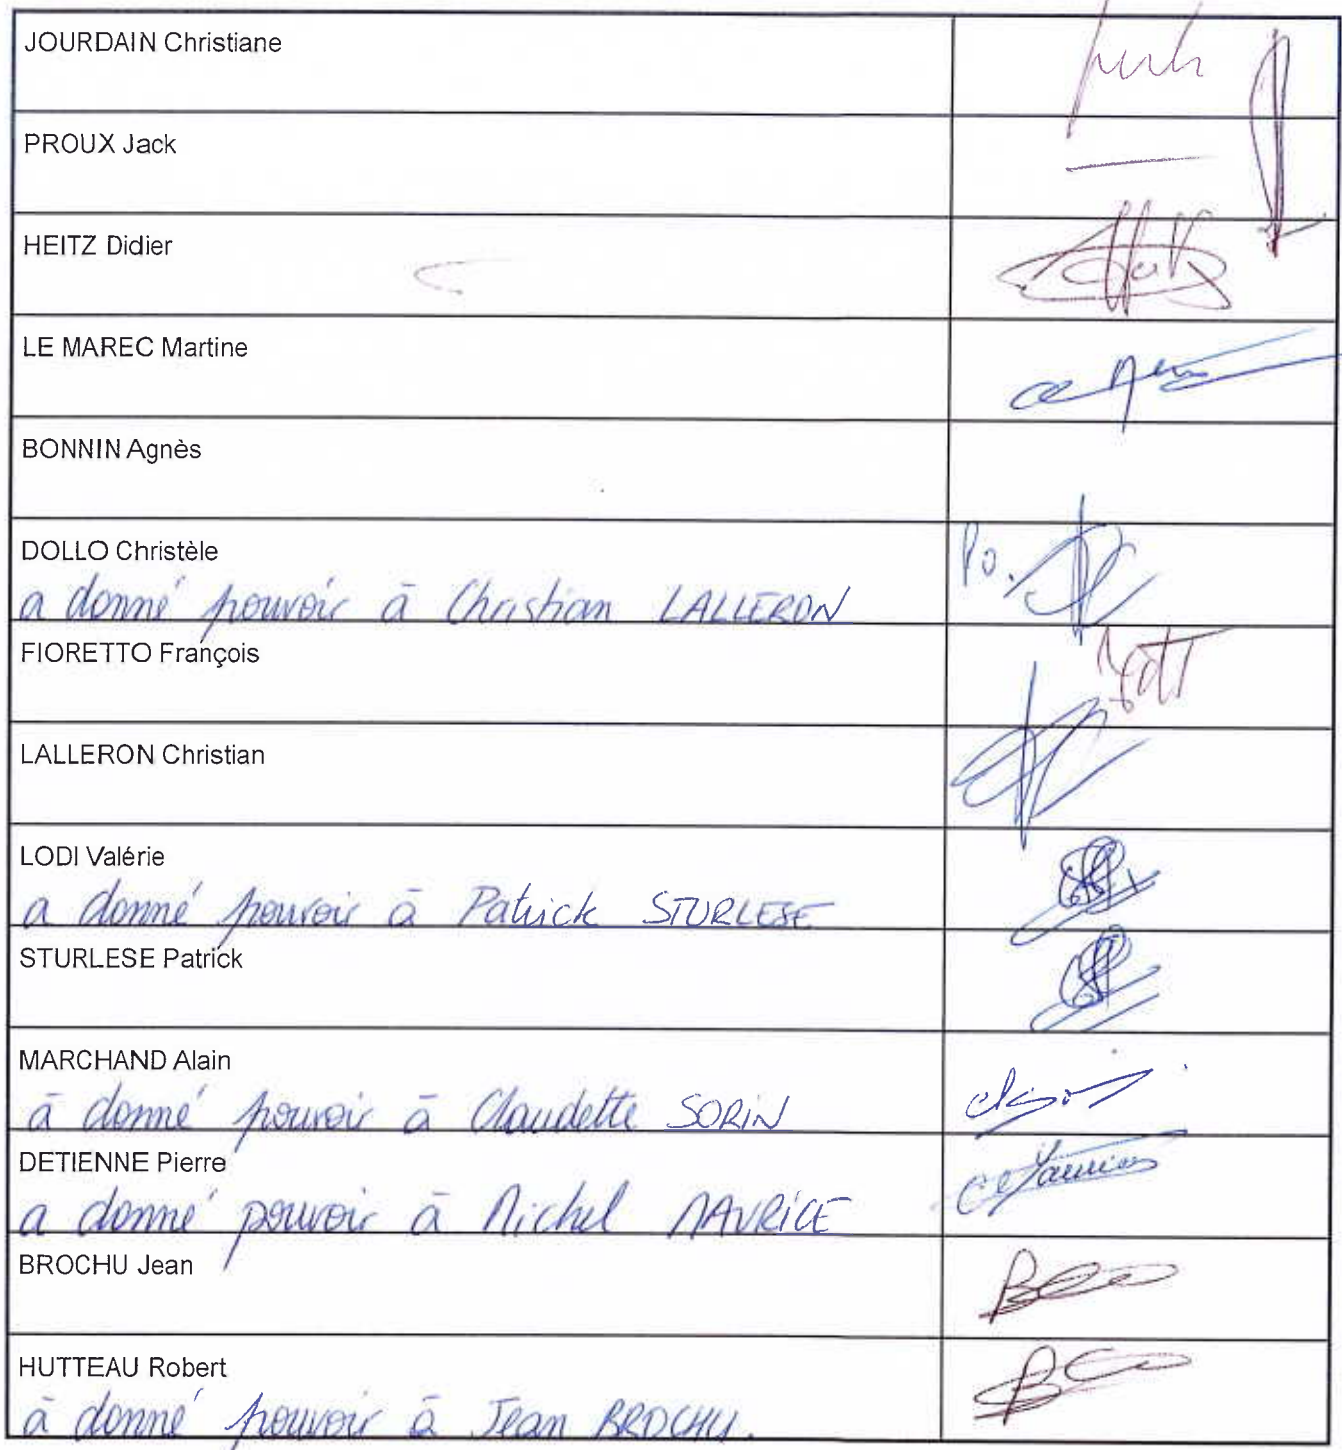 JOURDAIN Christiane
PROUX Jack
HEITZ Didier
LE MAREC Martine
BONNIN Agnès
DOLLO Christèle
a donné pouvoir à Christian LALLERON
Po.
FIORETTO François
LALLERON Christian
LODI Valérie
a donné pouvoir à Patrick STURLESE
STURLESE Patrick
MARCHAND Alain
à donné pouvoir à Claudette SORIN
DETIENNE Pierre
a donné pouvoir à Michel MAURICE
BROCHU Jean
HUTTEAU Robert
à donné pouvoir à Jean BROCHU.